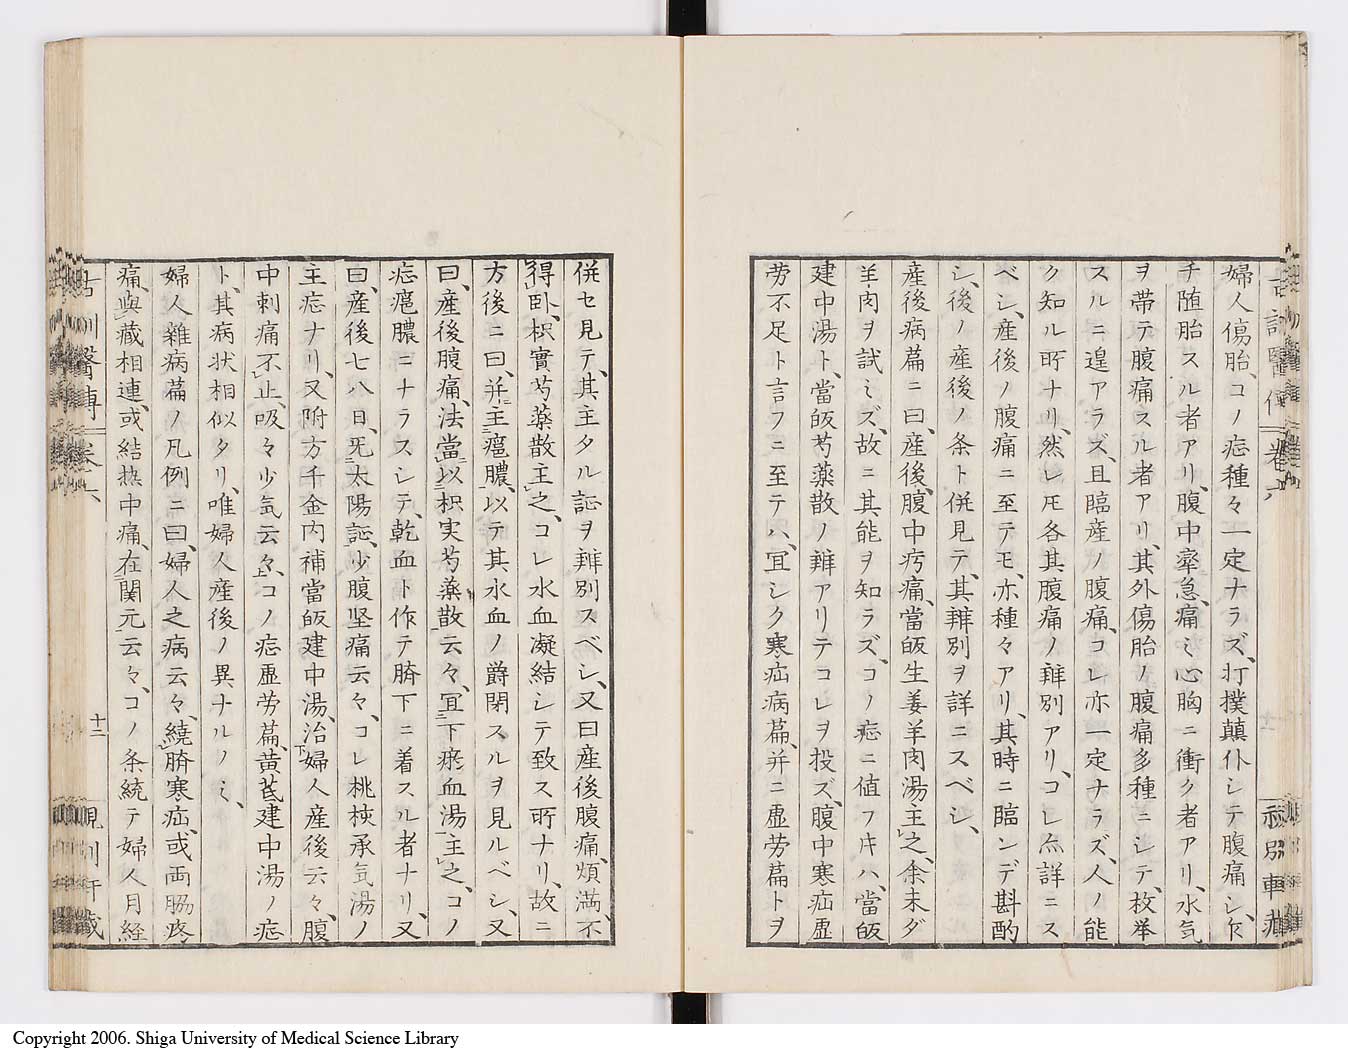 婦人傷胎、コノ症種々一定ナラズ、打撲顛仆シテ腹痛シ、
チ随胎スル者アリ、腹中牽急、痛ミ心胸ニ衝ク者アリ、水気
ヲ帯テ腹痛スル者アリ、其外傷胎ノ腹痛多種ニシテ、枚挙
スルニ遑アラズ、且臨産ノ腹痛、コレ亦一定ナラズ、人ノ能
ク知ル所ナリ、然レ𪜈各其腹痛ノ辨別アリ、コレ亦詳ニス
ベシ、産後ノ腹痛ニ至テモ、亦種々アリ、其時ニ臨ンデ斟酌
シ、後ノ産後ノ条ト併見テ、其辨別ヲ詳ニスベシ、
産後病篇ニ曰、産後、腹中㽲痛、當皈生姜羊肉湯主之、余未ダ
羊肉ヲ試ミズ、故ニ其能ヲ知ラズ、コノ症ニ値フ片ハ、當皈
建中湯ト、當皈芍薬散ノ辨アリテコレヲ投ズ、腹中寒疝虚
労不足ト言フニ至テハ、宜シク寒疝病篇、并ニ虚労篇トヲ
併セ見テ、其主タル証ヲ辨別スベシ、又曰産後腹痛、煩満、不
得卧、枳實芍薬散主之、コレ水血凝結シテ致ス所ナリ、故ニ
方後ニ曰、并主癰膿、以テ其水血ノ爵閉スルヲ見ルベシ、又
曰、産後腹痛、法當以枳実芍薬散云々、宜下瘀血湯主之、コノ
症癰膿ニナラスシテ、乾血ト作テ臍下ニ着スル者ナリ、又
曰、産後七八日、旡太陽証、少腹坚痛云々、コレ桃核承気湯ノ
主症ナリ、又附方千金内補當皈建中湯、治婦人産後云々、腹
中刺痛不止、吸々少気云々、コノ症虚労篇、黄芪建中湯ノ症
ト、其病状相似タリ、唯婦人産後ノ異ナルノミ、
婦人雜病篇ノ凡例ニ曰、婦人之病云々、繞臍寒疝、或両脇疼
痛、與藏相連、或結热中痛、在関元云々、コノ条統テ婦人月経
十二